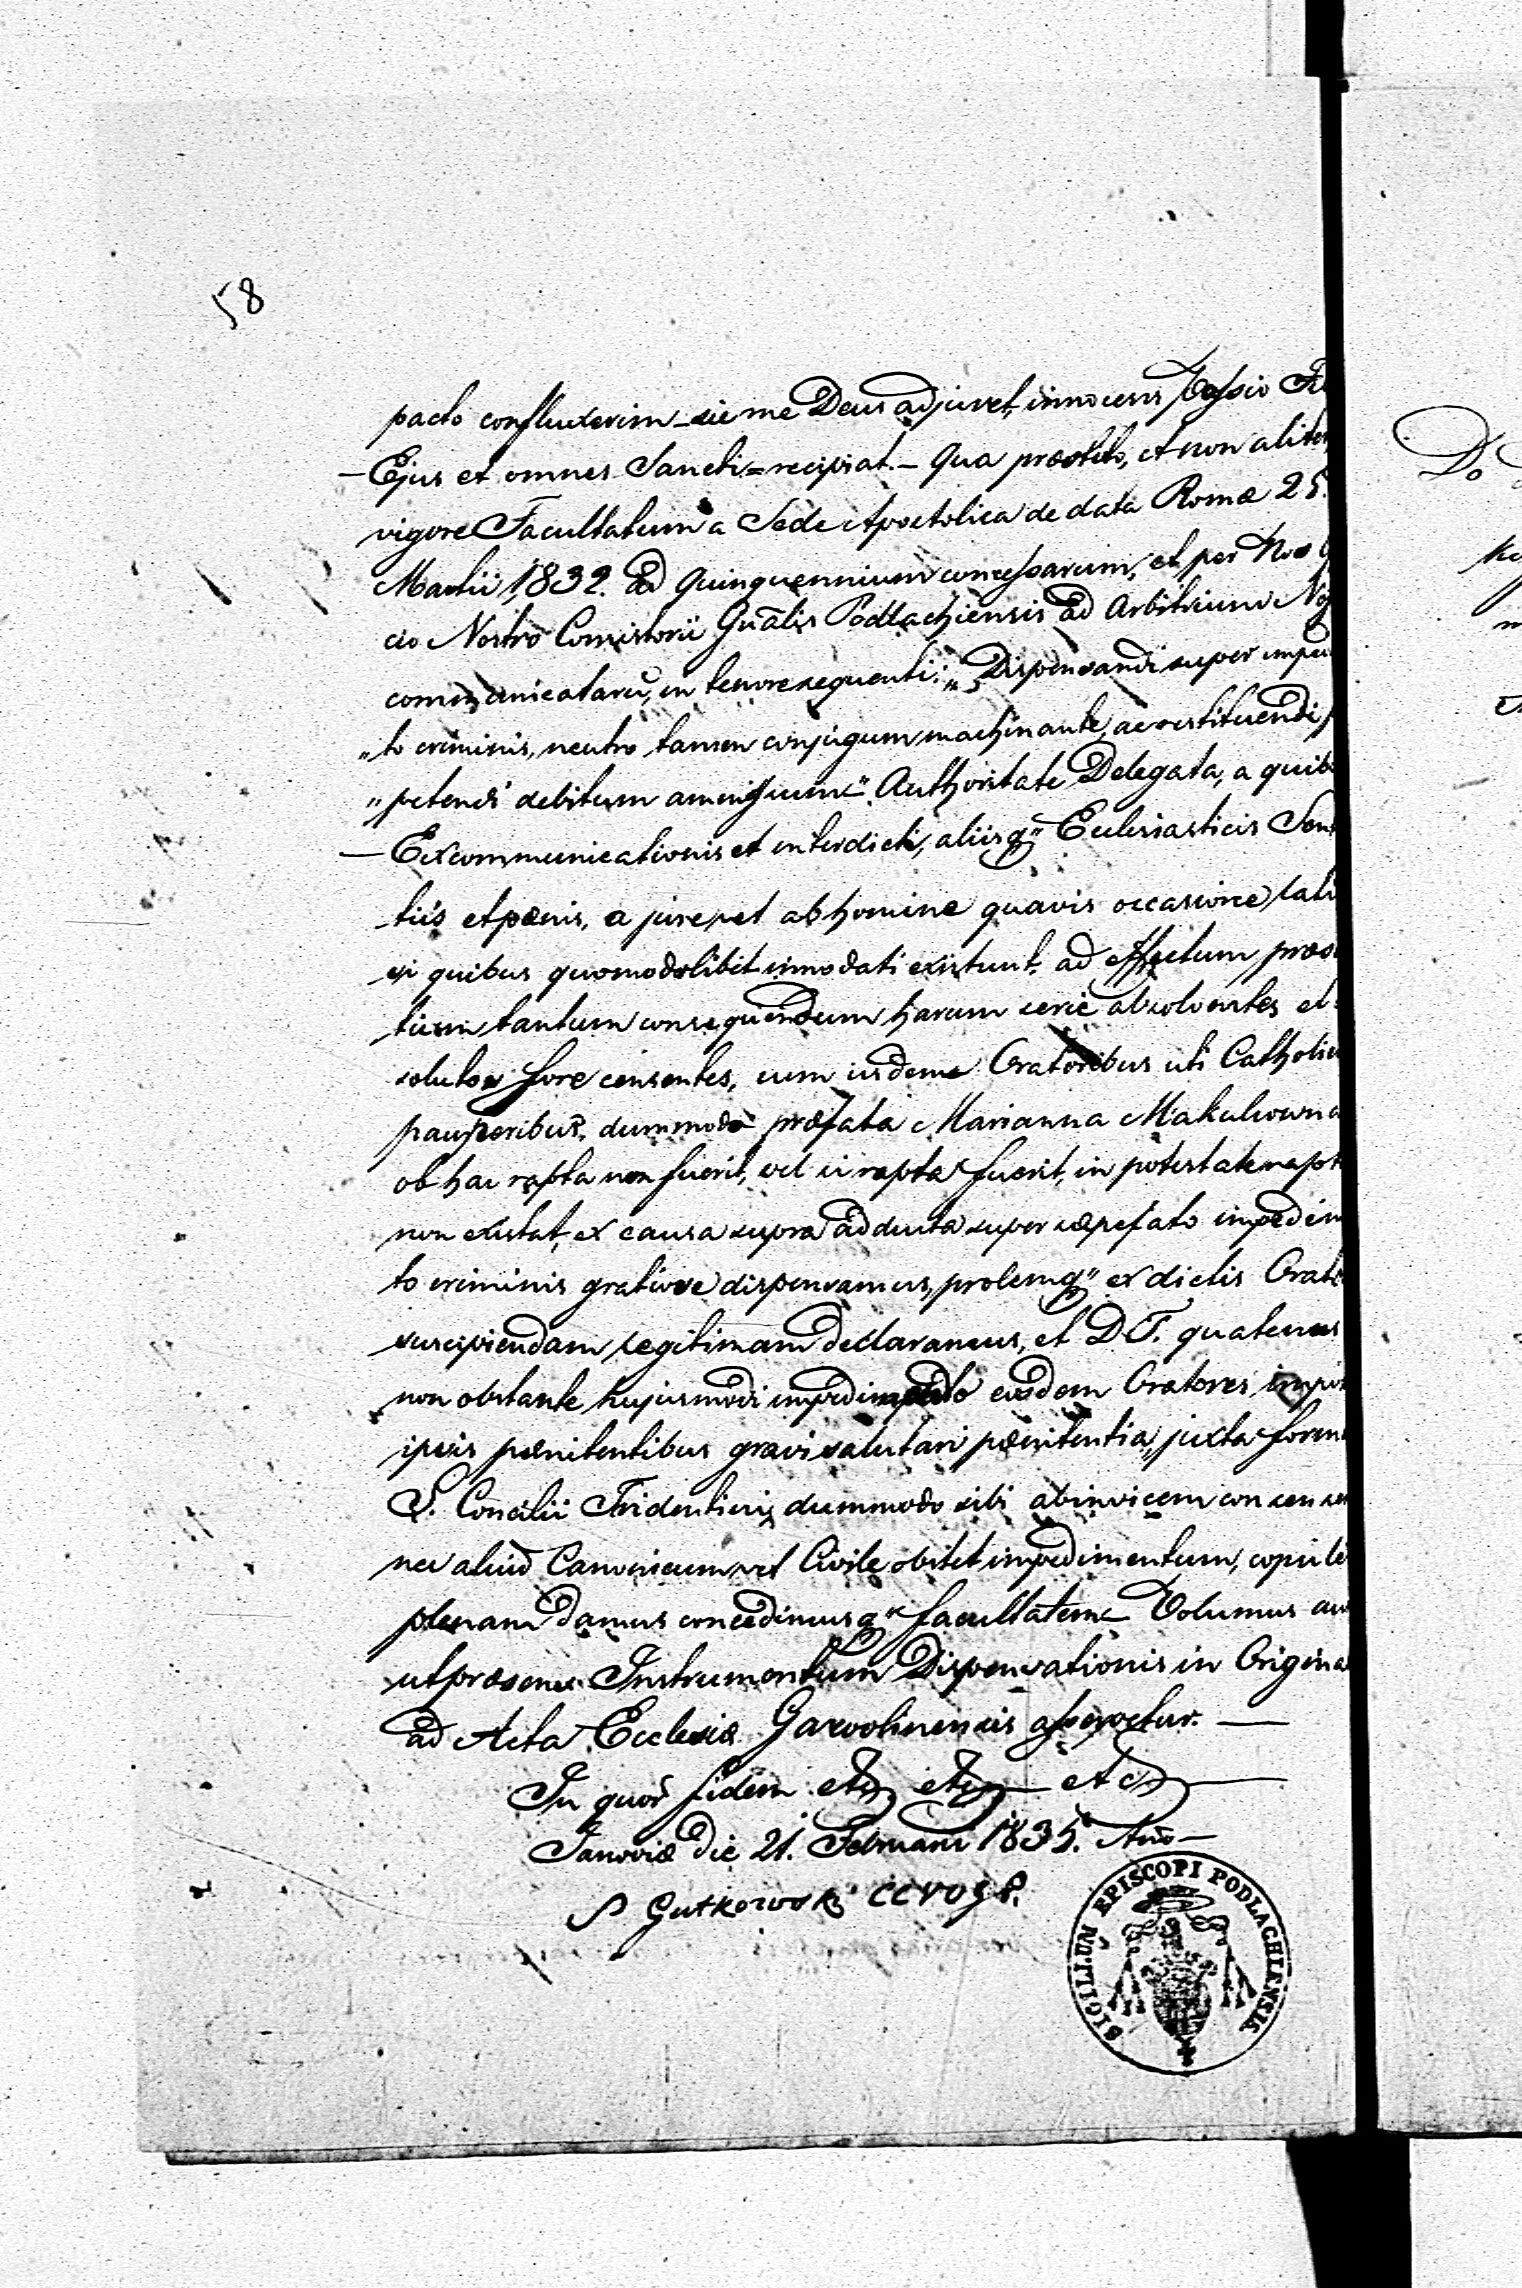 58
pacto confluxerim sic me Deus adjuvet, innocens Passio
— Ejus et omnes Sancti = recipiat. — Qua præstito, et non aliter,
vigore Facultatum a Sede Apostolica de data Romæ 25.
Martii 1832. ad Quinquennium concessarum, et per Nos
cio Nostro Consistorii Gnãlis Podlachiensis ad Arbitrium
communicatarũ, in tenore sequenti: „Dispensandi super impe
„to criminis, neutro tamen conjugum machinante, ac restituendi
„petendi debitum amissum" Authoritate Delegata, a quib
— Excommunicationis et interdicti, aliisq" Ecclesiasticis Sen
tiis et pœnis, a jure vel ab homine quavis occasione lati
si quibus quomodolibet innodati existunt, ad effectum præs
tium tantum consequendum harum serie absolventes et
solutos fore censentes, cum iisdem Oratoribus uti Catholic
pauperibus, dummodo præfata Marianna Makulcowna
ob hac rapta non fuerit, vel si rapta fuerit, in potestate rapt
non existat, ex causa supra adducta super sæpefato impedim
to criminis gratiose dispensamus, prolemq" ex dictis Orato
suscipiendam legitimam declaramus, et D T. quatenus
non obstante hujusmodi impedimento eosdem Oratores impos
ipsis pœnitentibus gravi salutari pœnitentia, juxta form
S. Concilii Tridentini, dummodo sibi abinvicem consen
nec aliud Canonicum vel Civile obstet impedimentum, copul
plenam damus concedimusq" facultatem Volumus au
ut præsens Instrumentum Dispensationis in Origina
ad Acta Ecclesiæ Garvolinensis asservetur. —
In quor̃ fidem etc etc etc —
Janoviæ Die 21. Februarii 1835. Añõ —
Gutkowski
SIGILLUM EPISCOPI PODLACHIENSIS
Do